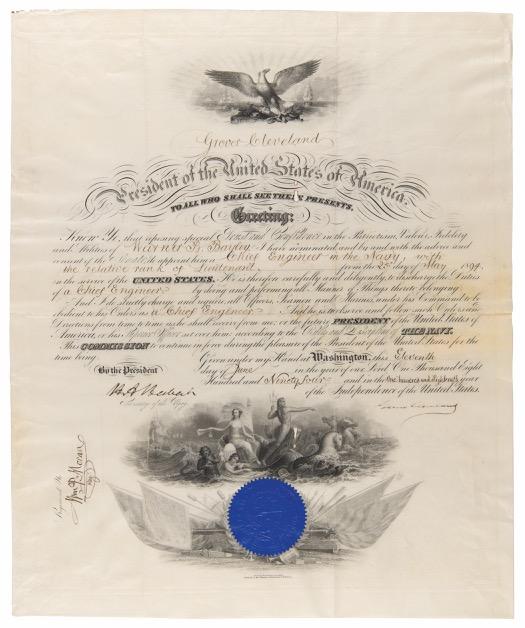 Grover Cleveland
President of the United States of America.
TO ALL WHO SHALL SEE THESE PRESENTS,
Greeting:
Know Ye, that reposing special Trust and Confidence in the Patriotism, Valor, Fidelity
and Abilities of I have nominated and by and with the advice and
consent of the Senate do appoint him a Chief Engineer in the Navy, with
the relative rank of Lieutenant, from the day of May 1894,
in the service of the UNITED STATES. He is therefore carefully and diligently to discharge the Duties
of a Chief Engineer by doing and performing all Manner of Things thereto belonging.
And I do strictly charge and require all Officers, Seamen and Marines under his Command to be
obedient to his Orders as a Chief Engineer. And he is to observe and follow such Orders and
Directions from time to time as he shall receive from me, or the future PRESIDENT of the United States of
America, or his Superior Officer set over him, according to the of THE NAVY.
This COMMISSION to continue in force during the pleasure of the President of the United States for the
time being.
Given under my Hand at Washington, this Eleventh
By the President
day of June in the year of our Lord One Thousand Eight
Hundred and Ninety Four and in the One hundred and Eighteenth year
of the Independence of the United States.
Secretary of the Navy.